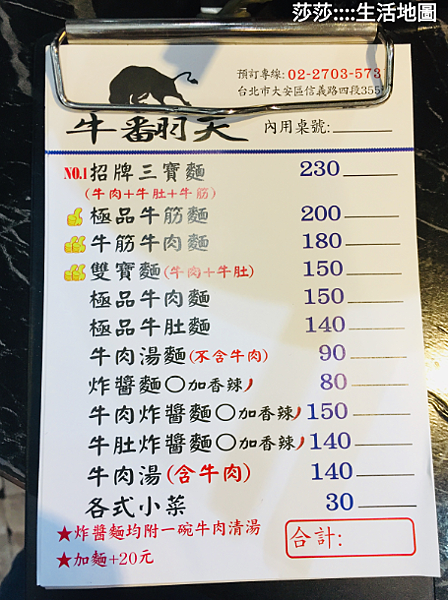 莎莎::::生活地圖
預訂專線: 02-2703-573
台北市大安區信義路四段355
牛番羽天 內用桌號:
NO.1招牌三寶麵 230
(牛肉+牛肚+牛筋)
極品牛筋麵 200
牛筋牛肉麵 180
雙寶麵(牛肉+牛肚) 150
極品牛肉麵 150
極品牛肚麵 140
牛肉湯麵(不含牛肉) 90
炸醬麵○加香辣 80
牛肉炸醬麵○加香辣 150
牛肚炸醬麵○加香辣 140
牛肉湯(含牛肉) 140
各式小菜 30
★炸醬麵均附一碗牛肉清湯
★加麵+20元
合計: